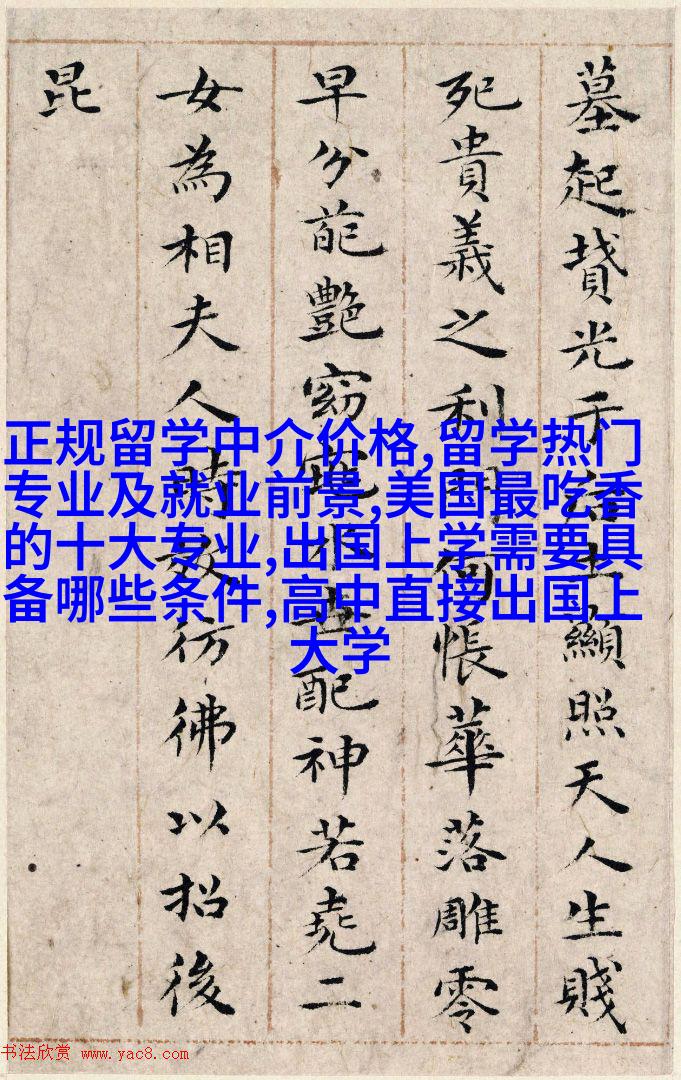 墓起墳光于后土顯照天人生賤
死貴義之利門何悵華落雕零
早分葩豔窈窕永世配神若堯二
女為相夫人時效彷彿以招後
昆
正规留学中介价格,留学热门
专业及就业前景,美国最吃香
的十大专业,出国上学需要具
备哪些条件,高中直接出国上
大学
书法欣赏 www.yac8.com